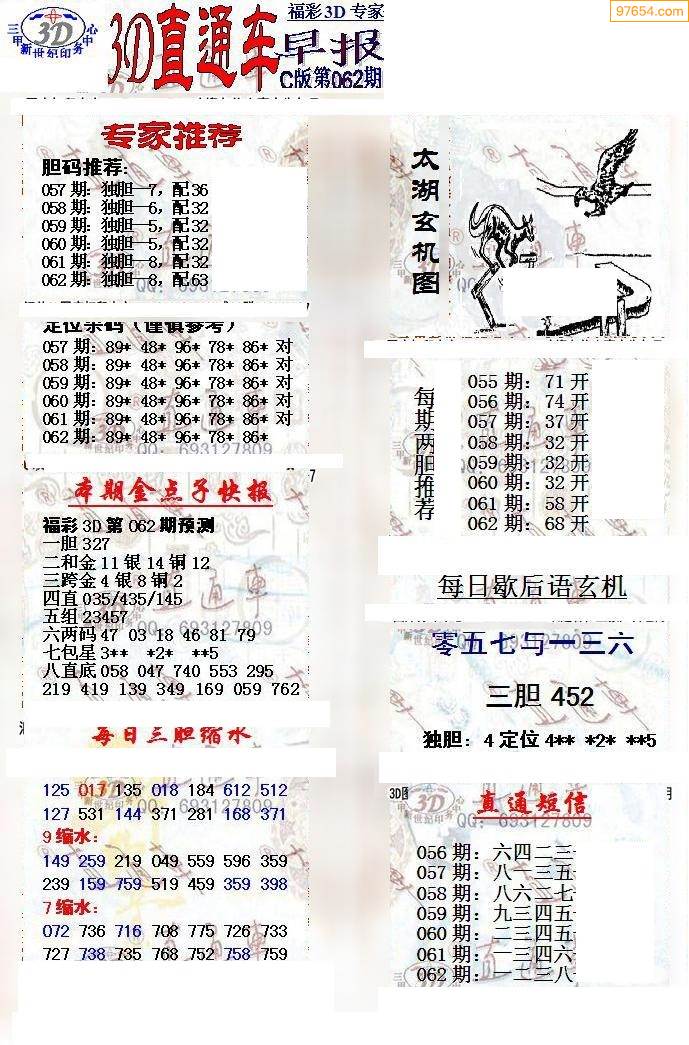 福彩3D专家
97654.com
三甲 3D 中心
新世纪印务
3D直通车
早报
C版第062期
专家推荐
胆码推荐:
057期：独胆—7，配36
058期：独胆—6，配32
059期：独胆—5，配32
060期：独胆—5，配32
061期：独胆—8，配32
062期：独胆—8，配63
定位杀码（谨慎参考）
057期：89* 48* 96* 78* 86* 对
058期：89* 48* 96* 78* 86* 对
059期：89* 48* 96* 78* 86* 对
060期：89* 48* 96* 78* 86* 对
061期：89* 48* 96* 78* 86* 对
062期：89* 48* 96* 78* 86*
QQ：693127809
本期金点子快报
福彩3D第062期预测
一胆327
二和金11银14铜12
三跨金4银8铜2
四直035/435/145
五组23457
六两码47 03 18 46 81 79
七包星3** *2* **5
八直底058 047 740 553 295
219 419 139 349 169 059 762
每日三胆缩水
125 017 135 018 184 612 512
127 531 144 371 281 168 371
9缩水：
149 259 219 049 559 596 359
239 159 759 519 459 359 398
7缩水：
072 736 716 708 775 726 733
727 738 735 768 752 758 759
太湖玄机图
每期两胆推荐
055期：71开
056期：74开
057期：37开
058期：32开
059期：32开
060期：32开
061期：58开
062期：68开
每日歇后语玄机
零五七与一三六
三胆 452
独胆：4 定位4** *2* **5
直通短信
QQ：693127809
056期：六四二三
057期：八一三五
058期：八六二七
059期：九三四五
060期：二三四五
061期：一三四六
062期：一二三八